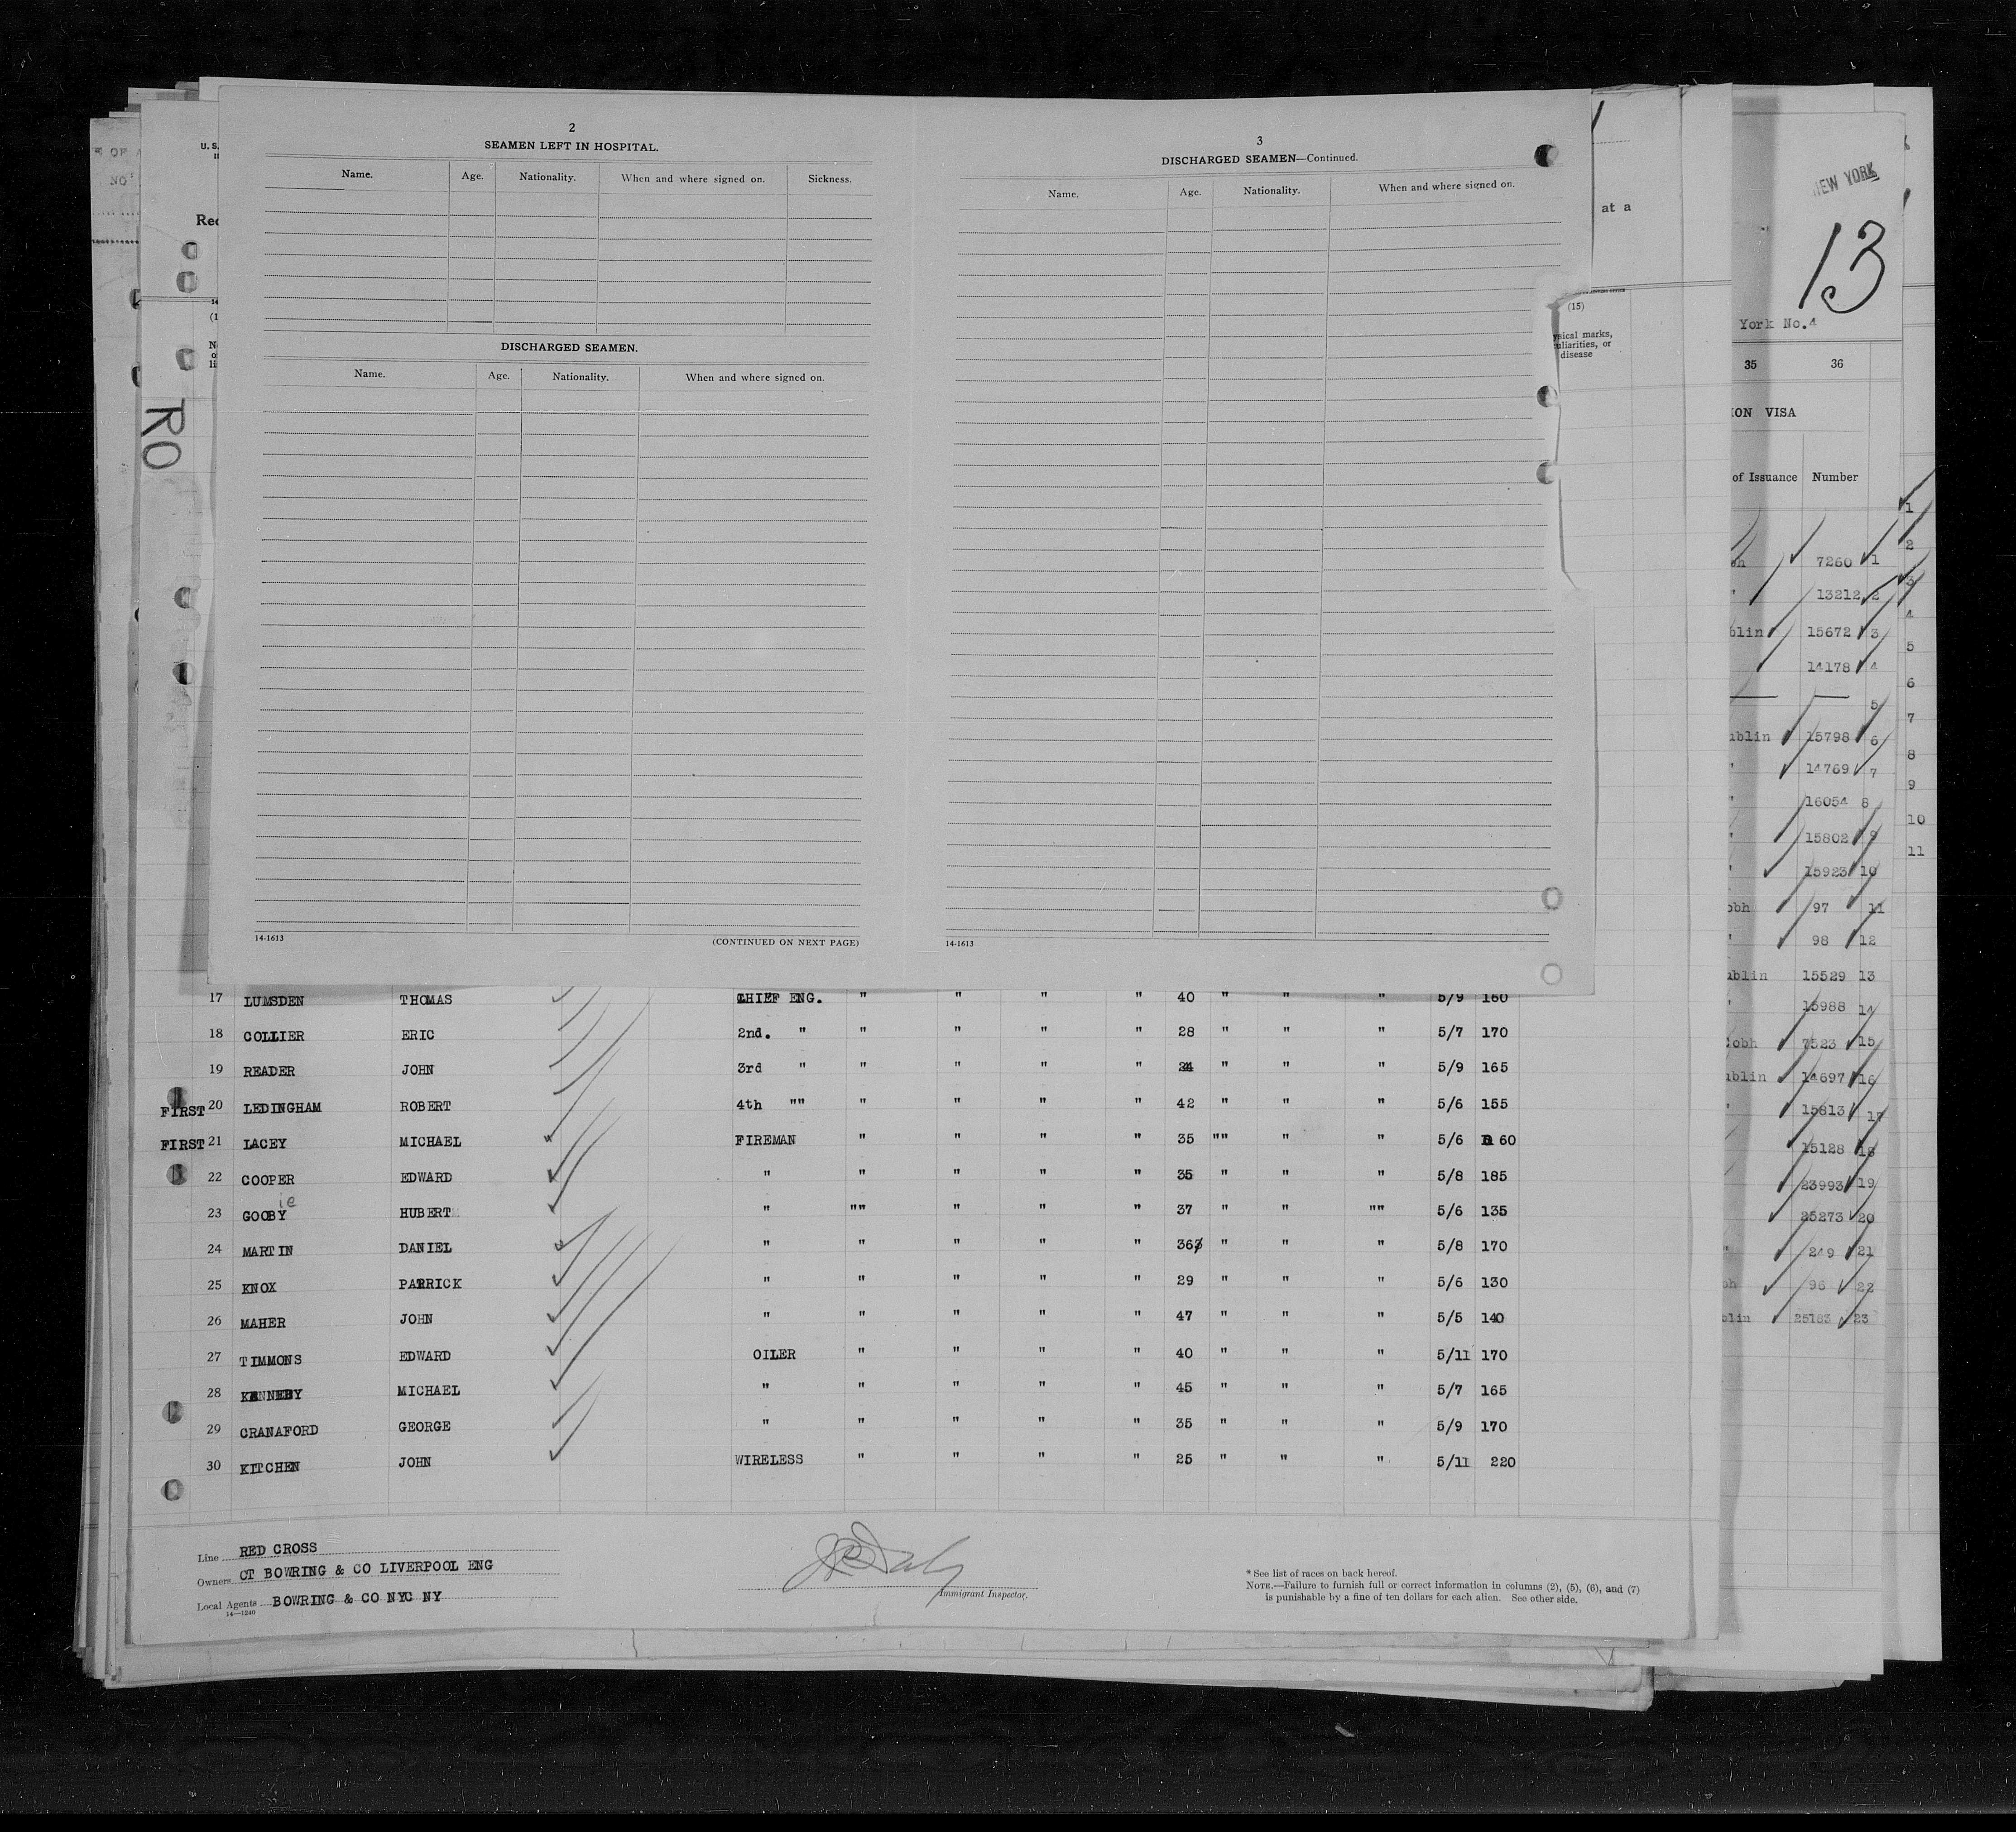 2
SEAMEN LEFT IN HOSPITAL.
Name. Age. Nationality. When and where signed on. Sickness.
DISCHARGED SEAMEN.
Name. Age. Nationality. When and where signed on.
14-1613 (CONTINUED ON NEXT PAGE)
3
DISCHARGED SEAMEN—Continued.
Name. Age. Nationality. When and where signed on.
14-1613
U. S.
Rec
RO
at a
(15)
ysical marks,
uliarities, or
disease
NEW YORK
13
York No.4
35 36
ION VISA
of Issuance Number
7260 1
" 13212 2
blin 15672 3
14178 4
5
ublin 15798 6
" 14769 7
" 16054 8
" 15802 9
" 15923 10
obh 97 11
" 98 12
ublin 15529 13
" 15988 14
Cobh 7523 15
ublin 14697 16
" 15813 17
15128 18
23993 19
25273 20
" 249 21
bh 96 22
blin 25183 23
1
2
3
4
5
6
7
8
9
10
11
17 LUMSDEN THOMAS CHIEF ENG. " " " " 40 " " " 5/9 160
18 COLLIER ERIC 2nd. " " " " " 28 " " " 5/7 170
19 READER JOHN 3rd " " " " " 24 " " " 5/9 165
FIRST 20 LEDINGHAM ROBERT 4th "" " " " " 42 " " " 5/6 155
FIRST 21 LACEY MICHAEL FIREMAN " " " " 35 "" " " 5/6 60
22 COOPER EDWARD " " " " " 35 " " " 5/8 185
ie
23 GOOBY HUBERT " "" " " " 37 " " "" 5/6 135
24 MARTIN DANIEL " " " " " 363 " " " 5/8 170
25 KNOX PATRICK " " " " " 29 " " " 5/6 130
26 MAHER JOHN " " " " " 47 " " " 5/5 140
27 TIMMONS EDWARD OILER " " " " 40 " " " 5/11 170
28 KENNEDY MICHAEL " " " " " 45 " " " 5/7 165
29 CRANAFORD GEORGE " " " " " 35 " " " 5/9 170
30 KITCHEN JOHN WIRELESS " " " " 25 " " " 5/11 220
Line RED CROSS
Owners CT BOWRING & CO LIVERPOOL ENG
Local Agents BOWRING & CO NYC NY
14—1240
Immigrant Inspector.
* See list of races on back hereof.
NOTE.—Failure to furnish full or correct information in columns (2), (5), (6), and (7)
is punishable by a fine of ten dollars for each alien. See other side.